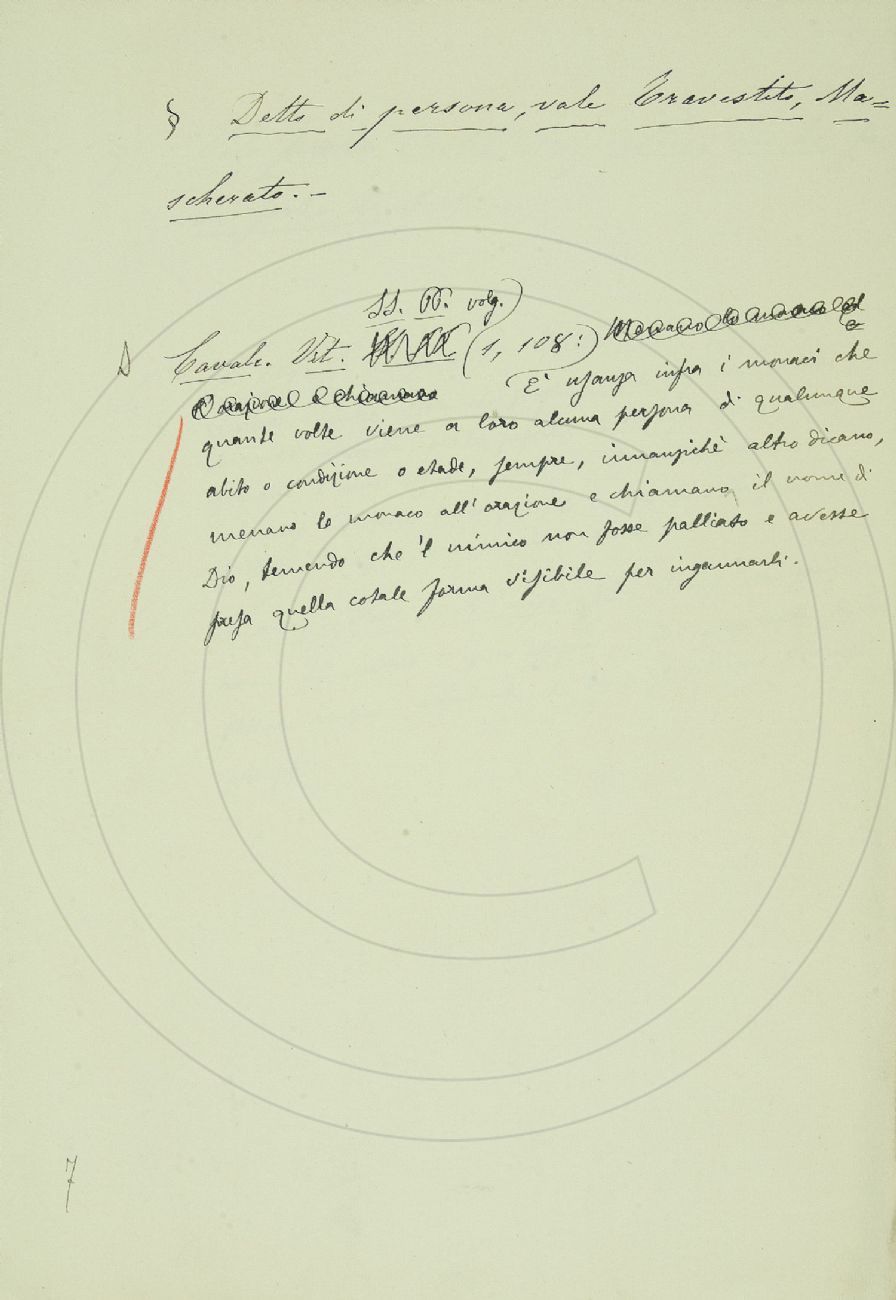 § Detto di persona, vale Travestito, Ma=
scherato. –
SS. PP. volg.)
Cavalc. Vit. (1, 108:)
È usanza infra i monaci che
quante volte viene a loro alcuna persona di qualunque
abito o condizione o etade, sempre, innanzichè altro dicano,
menano lo monaco all'orazione e chiamano il nome di
Dio, temendo che 'l nimico non fosse palliato e avesse
presa quella cotale forma visibile per ingannarli.
7